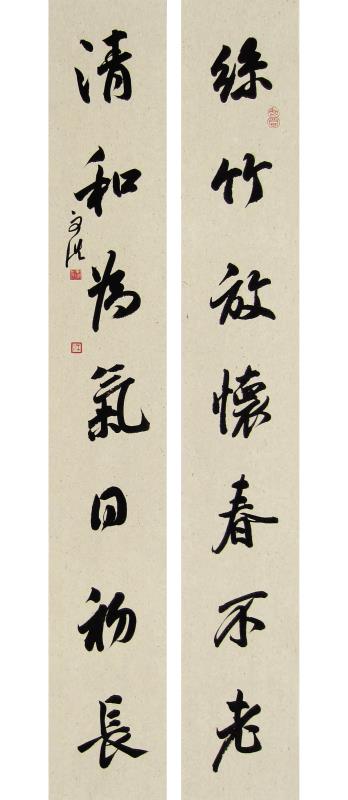 絲竹放懷春不老
清和為氣日初長